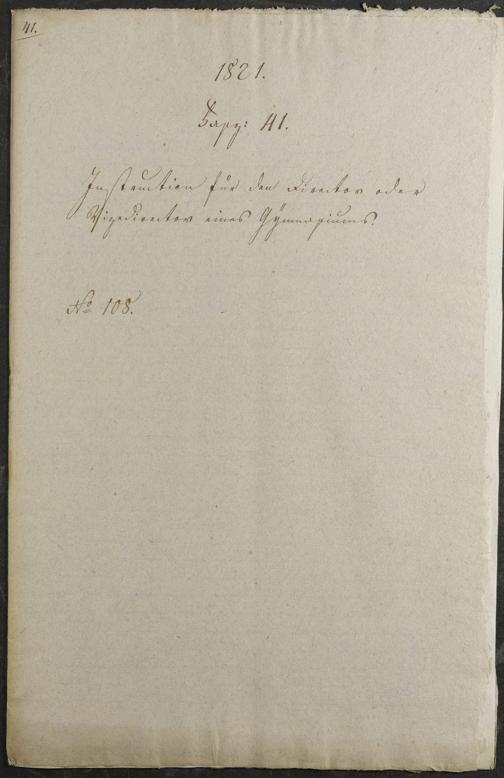 41.
1821.
Fasz: 41.
Instruction für den Director oder
Vizedirector eines Gÿmnasiums.
No 108.